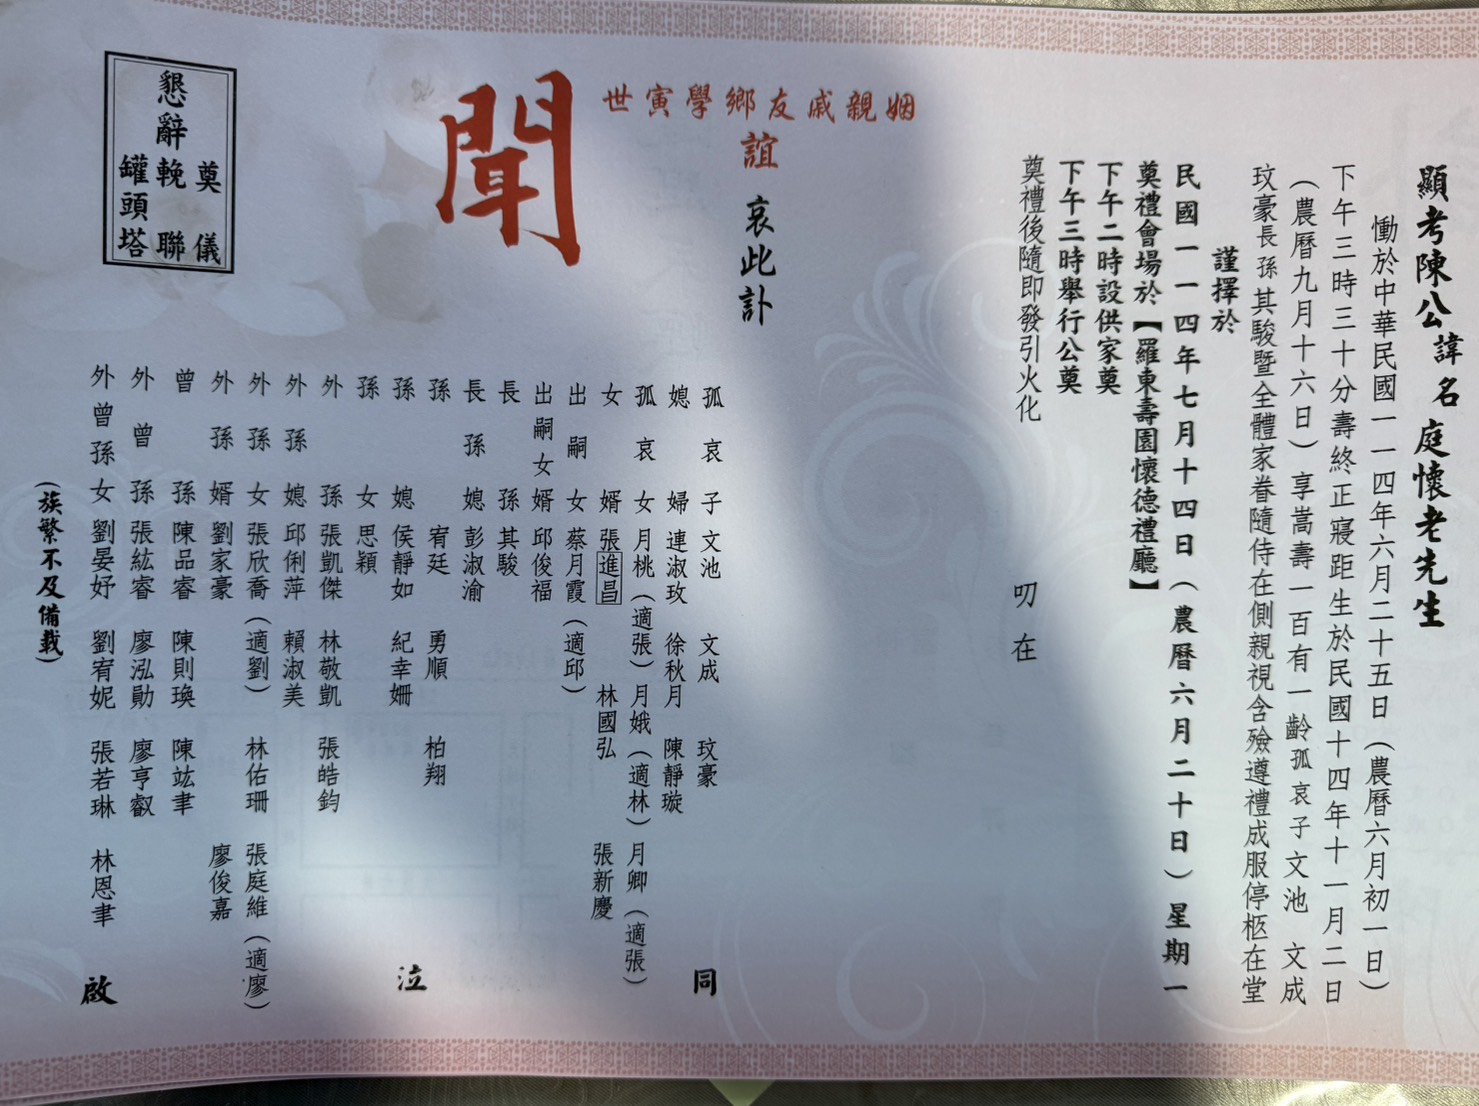 顯考陳公諱名庭懷老先生
慟於中華民國一一四年六月二十五日（農曆六月初一日）
下午三時三十分壽終正寢距生於民國十四年十一月二日
（農曆九月十六日）享嵩壽一百有一齡孤哀子文池 文成
玟豪長孫其駿暨全體家眷隨侍在側親視含殮遵禮成服停柩在堂
謹擇於
民國一一四年七月十四日（農曆六月二十日）星期一
奠禮會場於【羅東壽園懷德禮廳】
下午二時設供家奠
下午三時舉行公奠
奠禮後隨即發引火化
叨在
姻親戚友鄉學寅世
誼 哀此訃
聞
孤哀子 文池 文成 玟豪 同
媳婦 連淑玫 徐秋月 陳靜璇
孤哀女 月桃（適張）月娥（適林）月卿（適張）
女婿 張進昌 林國弘 張新慶
出嗣女 蔡月霞（適邱）
出嗣女婿 邱俊福
長孫 其駿
長孫媳 彭淑渝
孫 宥廷 勇順 柏翔
孫媳 侯靜如 紀幸姍 泣
孫女 思穎
外孫 張凱傑 林敬凱 張皓鈞
外孫媳 邱俐萍 賴淑美
外孫女 張欣喬（適劉） 林佑珊 張庭維（適廖）
外孫婿 劉家豪 廖俊嘉
曾孫 陳品睿 陳則瑍 陳竑聿
外曾孫 張紘睿 廖泓勛 廖亨叡
外曾孫女 劉晏妤 劉宥妮 張若琳 林恩聿 啟
（族繁不及備載）
奠儀
懇辭輓聯
罐頭塔